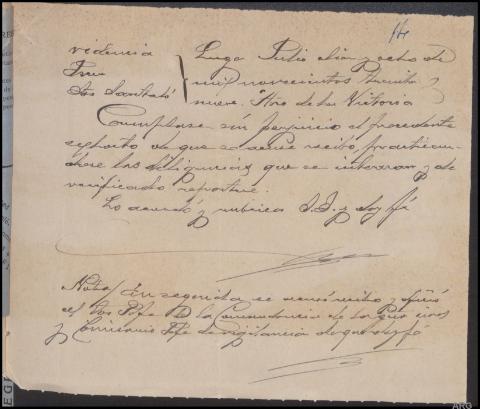 Lugo Julio diez y ocho de
mil novecientos treinta y
nueve. Año de la Victoria
Cumplase sin perjuicio el precedente
exhorto de que se acuse recibo, practican-
dose las diligencias que se interesan y de
verificado reportese.
Lo acordó y rubrica S.S. y doy fé
Nota/ En seguida se acusó recibo y ofició
a los de la Comandancia de la
y Comisario Jefe de vigilancia de que doy fé
ARG